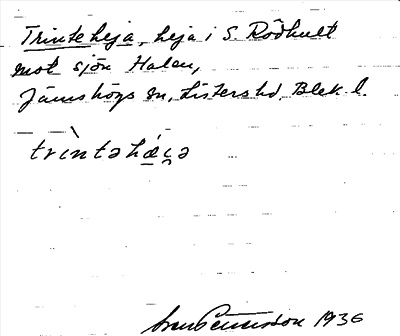 Trinteheja, heja i S. Rödhult
mot sjön Halen,
Jämshögs sn, Listers hd, Blek. l.
trìntəhæ̀i̯ə
1936